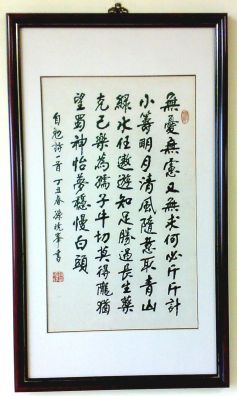 無憂無慮又無求何必斤斤計
小籌明月清風隨意取青山
綠水任遨遊知足勝過長生藥
克己樂為孺子牛切莫得隴猶
望蜀神怡夢穩慢白頭
自勉詩一首 丁丑春 孫 書